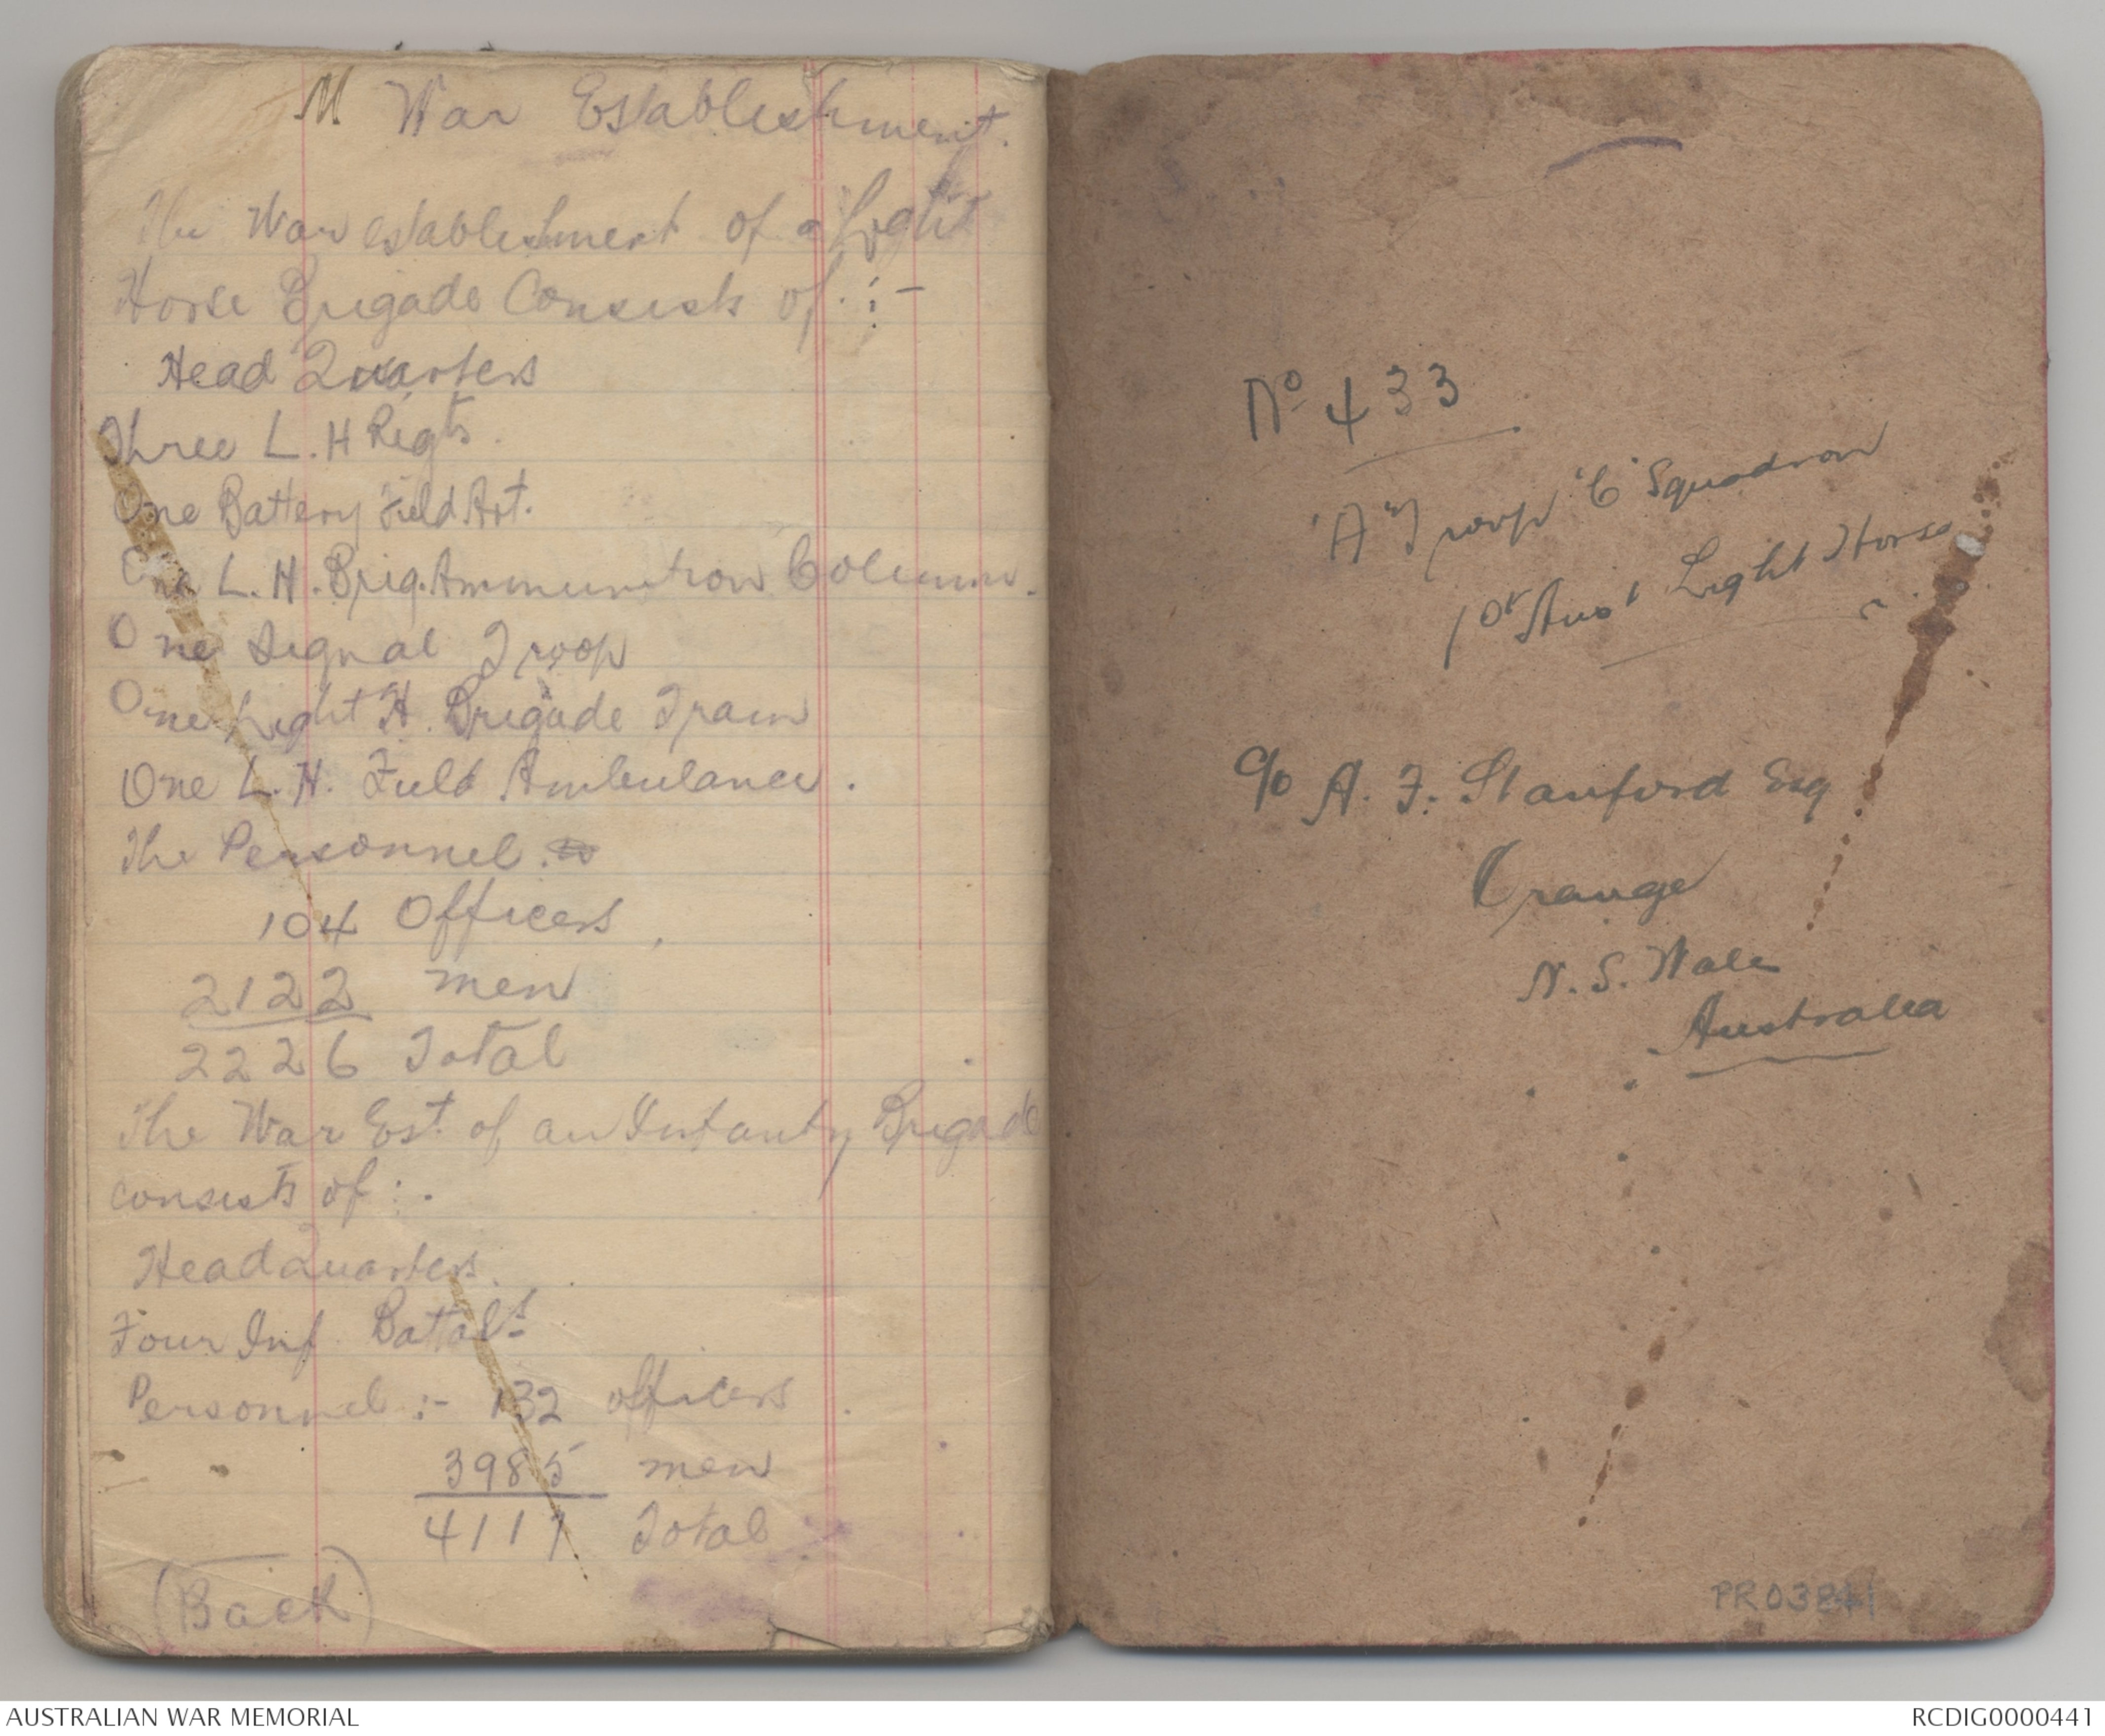 M War Establishment.
The War establishment of a Light
Horse Brigade Consists of :-
Head Quarters
Three L.H Regts.
One Battery Field Art.
One L.H. Brig. Ammunition Column.
One Signal Troop
One Light H. Brigade Train
One L.H. Field Ambulance.
The Personnel.
104 Officers
2122 men
2226 Total
The War Est. of an Infantry Brigade
consists of :-
Head Quarters.
Four Inf Batals
Personnel :- 132 officers
3985 men
4117 Total
(Back)
No 433
"A" Troop "C" Squadron
1st Aust Light Horse
c/o A. F. Stanford Esq
Orange
N. S. Wales
Australia
PR03841
AUSTRALIAN WAR MEMORIAL
RCDIG0000441